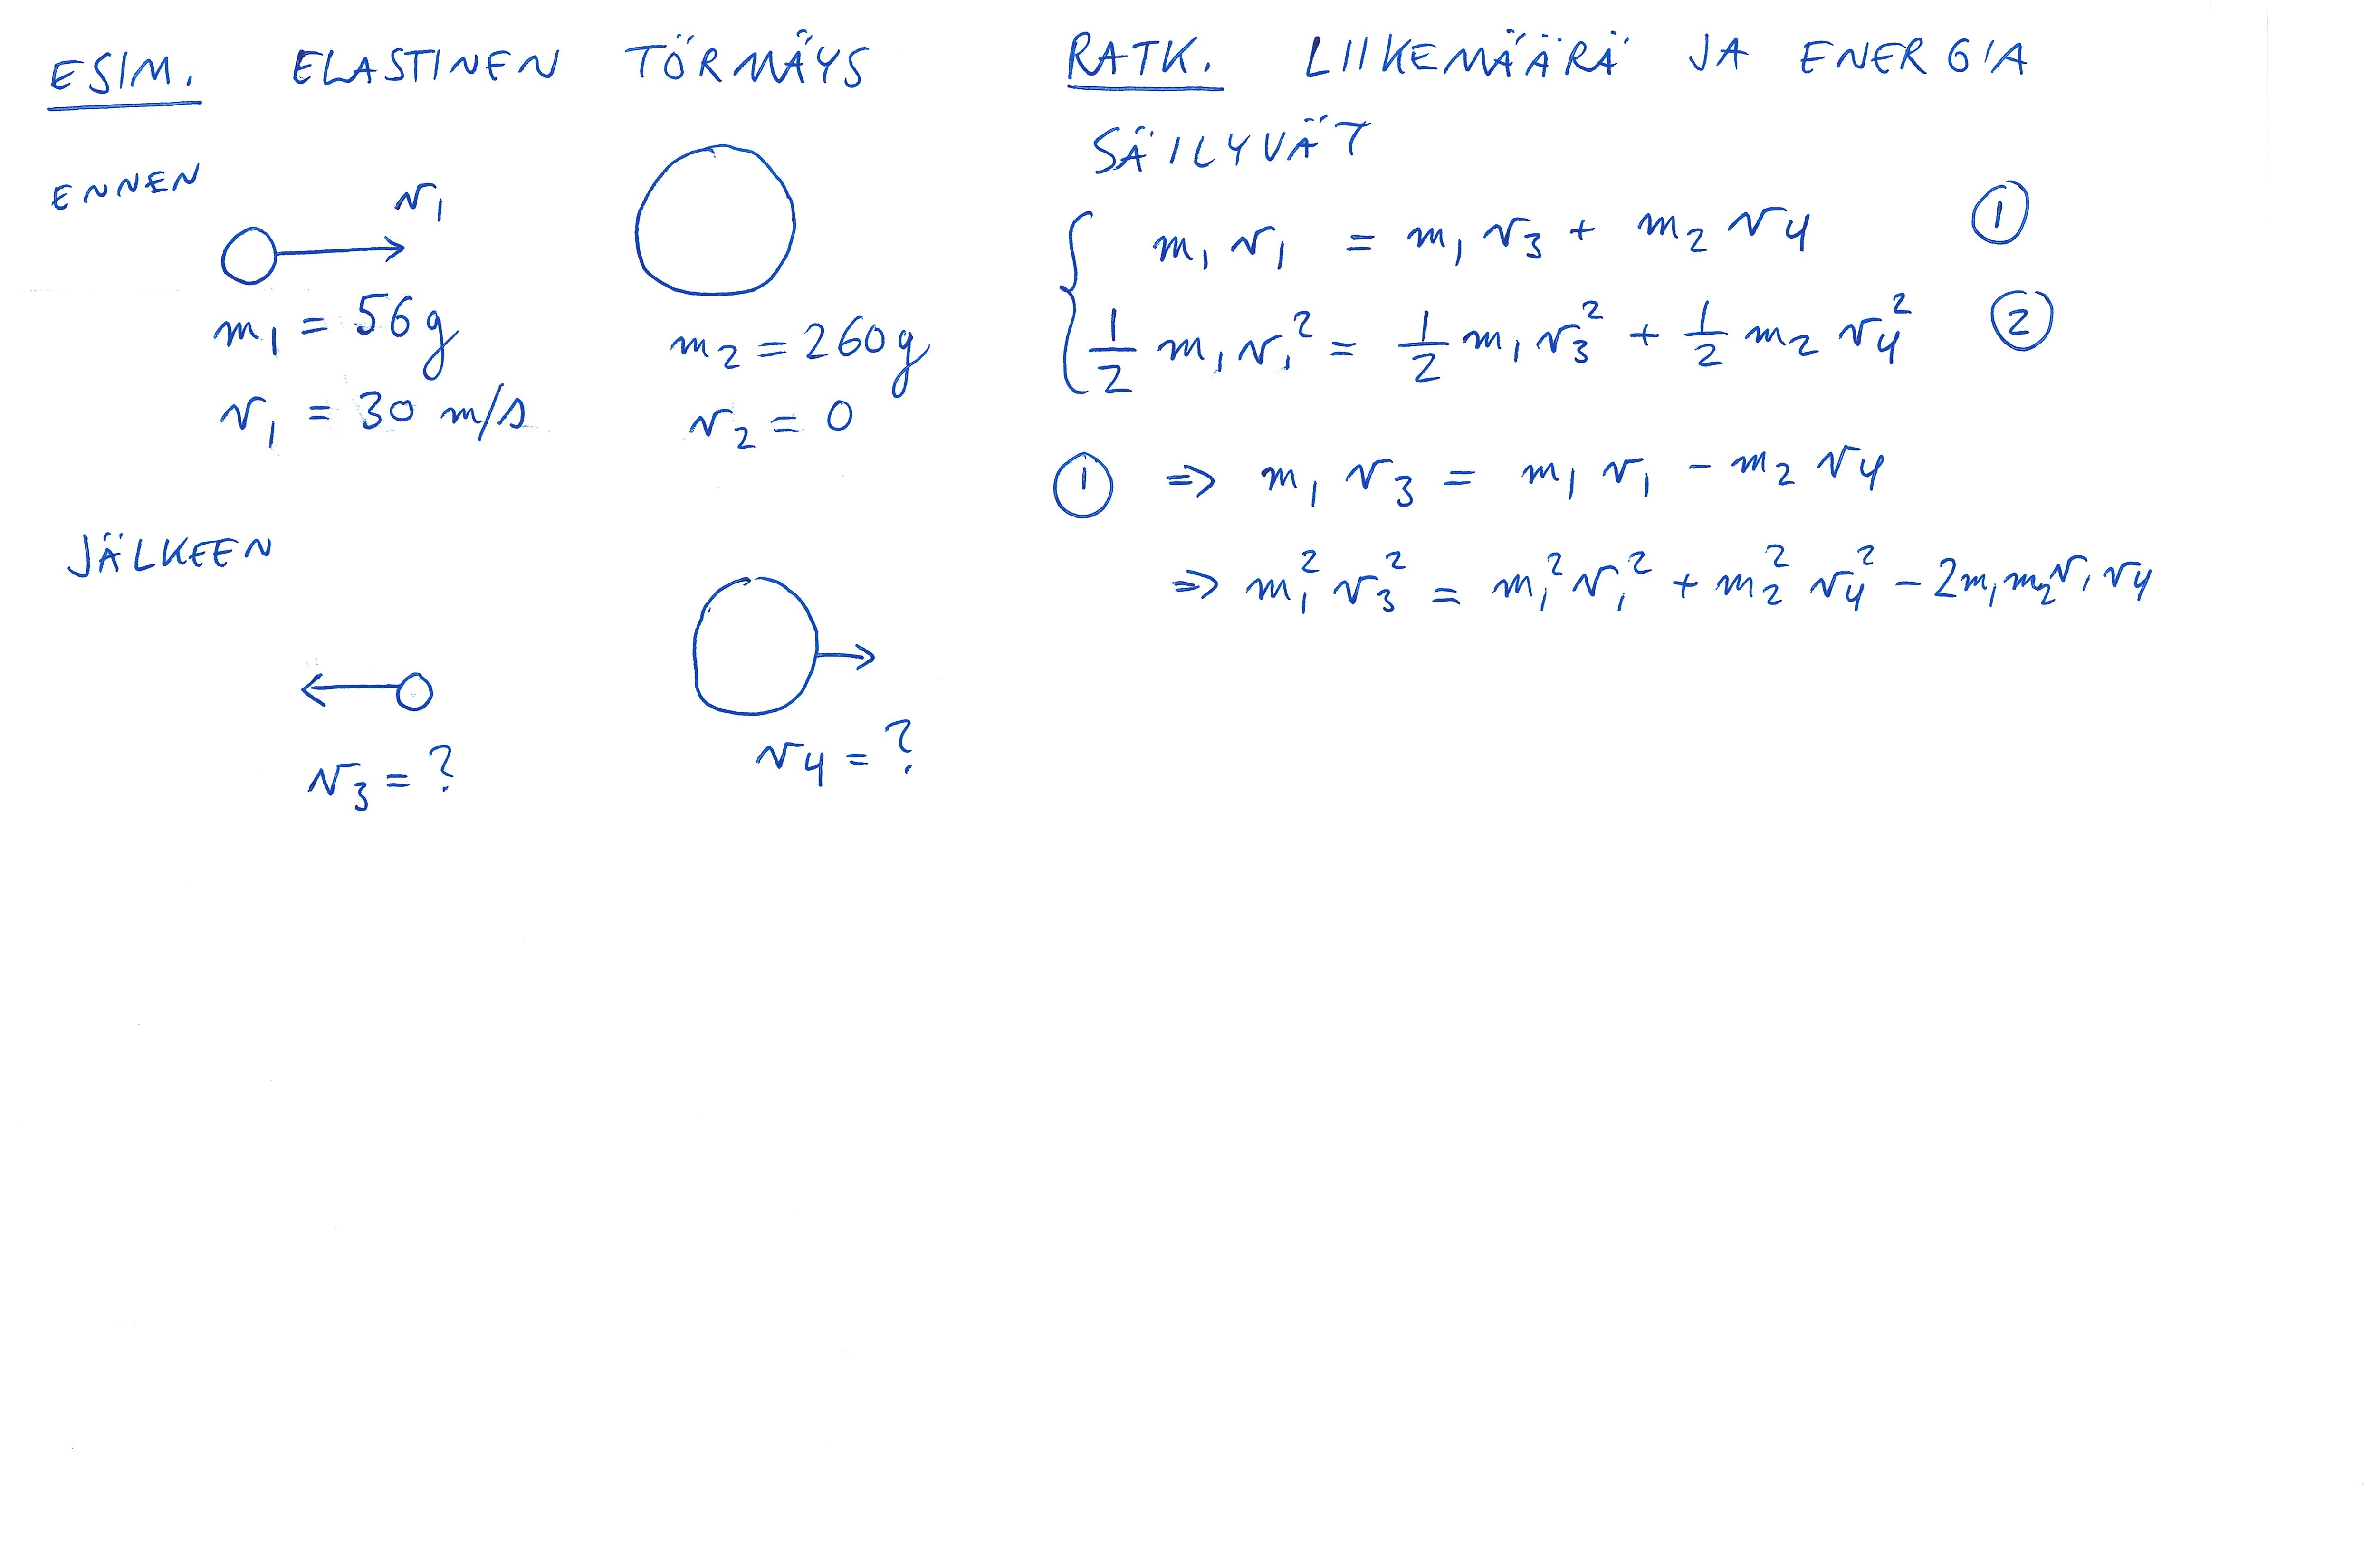 ESIM. ELASTINEN TÖRMÄYS
ENNEN
v₁
m₁ = 56g
v₁ = 30 m/s
m₂ = 260g
v₂ = 0
JÄLKEEN
v₃ = ?
v₄ = ?
RATK. LIIKEMÄÄRÄ JA ENERGIA
SÄILYVÄT
m₁ v₁ = m₁ v₃ + m₂ v₄ ①
½ m₁ v₁² = ½ m₁ v₃² + ½ m₂ v₄² ②
① ⇒ m₁ v₃ = m₁ v₁ − m₂ v₄
⇒ m₁² v₃² = m₁² v₁² + m₂² v₄² − 2m₁m₂v₁v₄